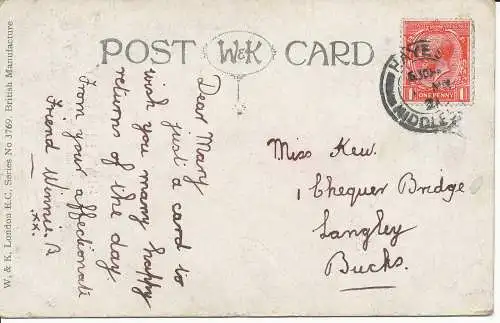 POST W&K CARD
Dear Mary
just a card to
wish you many happy
returns of the day
From your affectionate
Friend Winnie. B
xx.
Miss Kew.
1 Chequer Bridge
Langley
Bucks.
HAYES
MIDDLEX
ONE PENNY
W. & K. London E.C. Series No 3769. British Manufacture